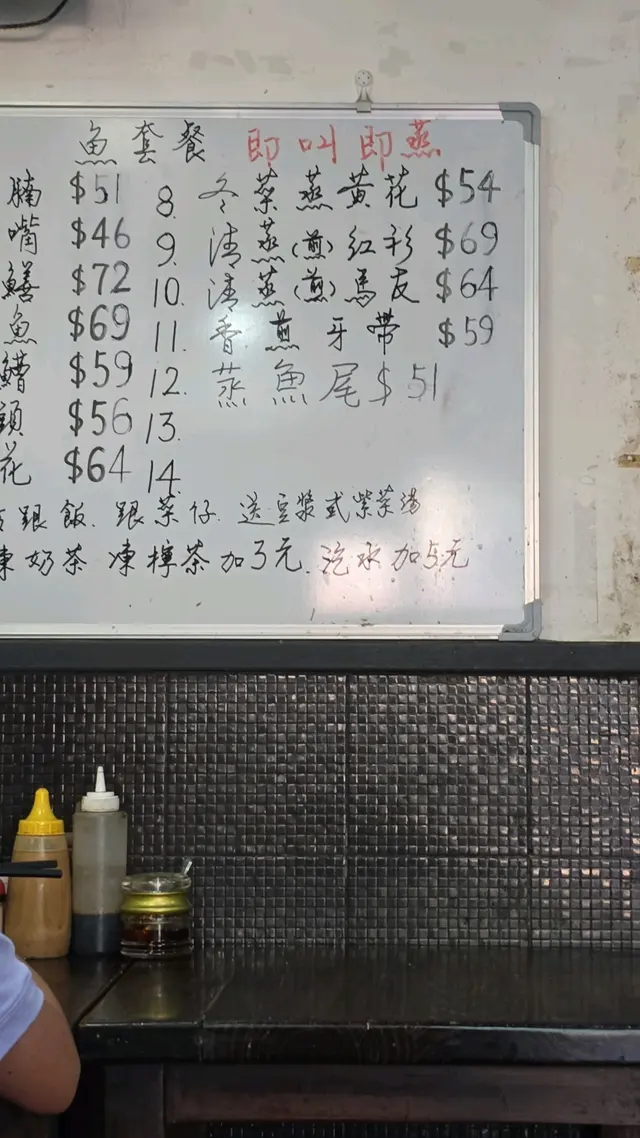 魚套餐 即叫即蒸
腩 $51 8. 冬菜蒸黃花 $54
嘴 $46 9. 清蒸(煎)紅衫 $69
鱔 $72 10. 清蒸(煎)馬友 $64
魚 $69 11. 香煎牙帶 $59
鰽 $59 12. 蒸魚尾 $51
頭 $56 13.
花 $64 14.
跟飯、跟菜仔、送豆漿或紫菜湯
凍奶茶 凍檸茶加3元、汽水加5元